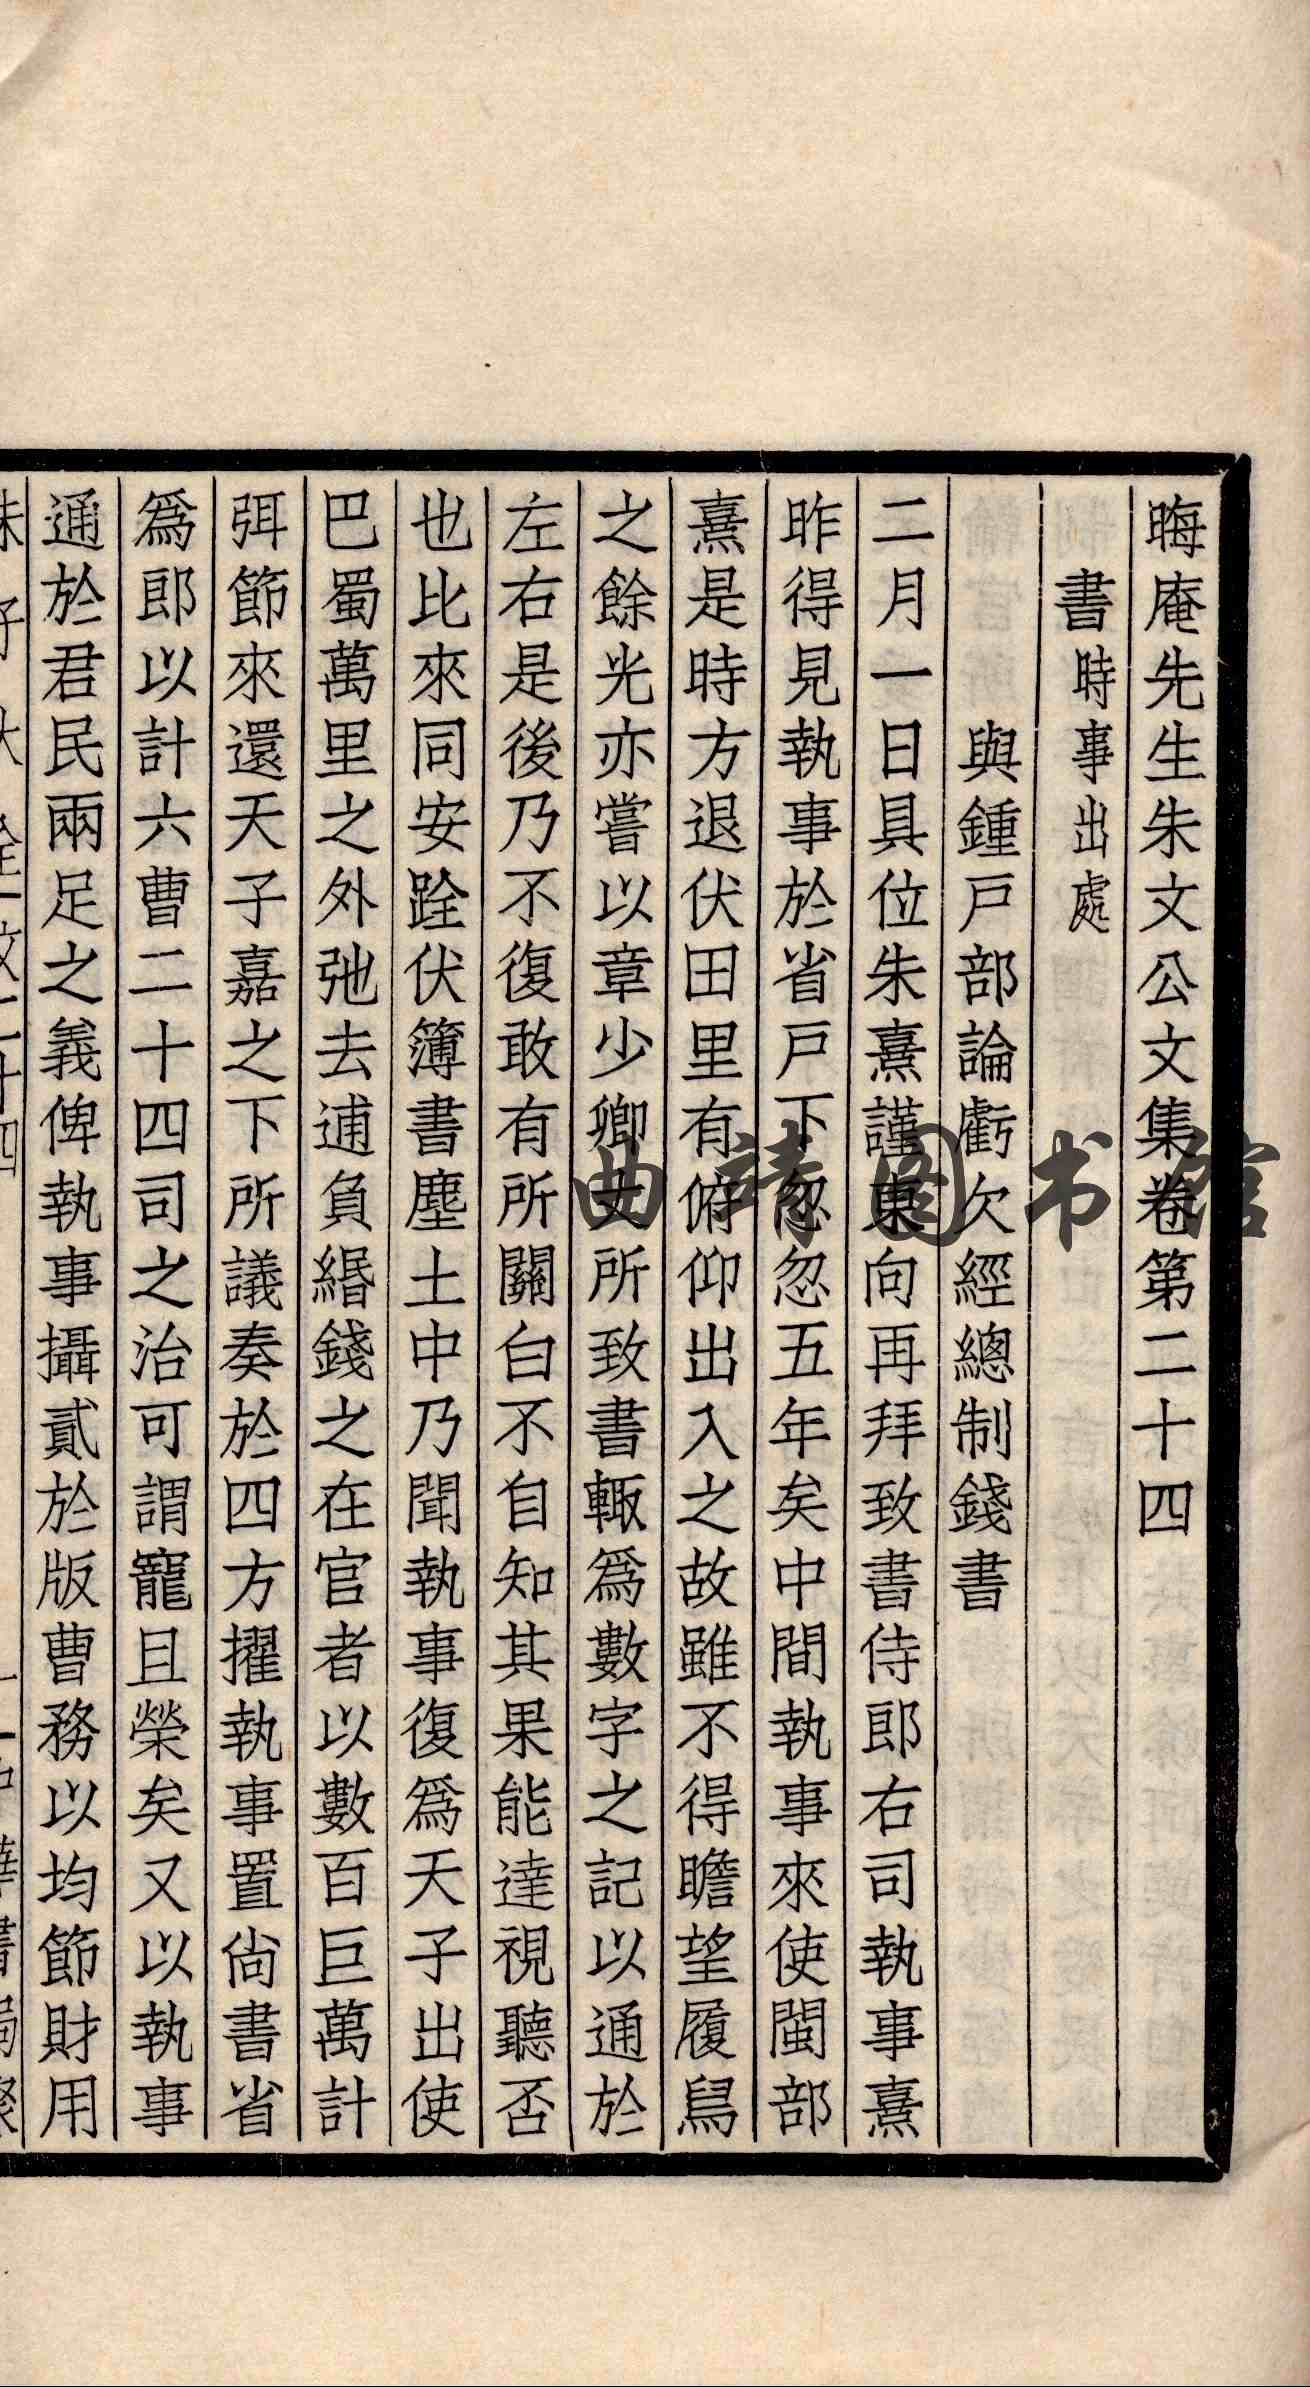 晦庵先生朱文公文集卷第二十四
書時事出處
與鍾戸部論虧欠經總制錢書
二月一日具位朱熹謹東向再拜致書侍郎右司執事熹
昨得見執事於省戸下忽忽五年矣中間執事來使閩部
熹是時方退伏田里有俯仰出入之故雖不得瞻望履舄
之餘光亦嘗以章少卿丈所致書輙爲數字之記以通於
左右是後乃不復敢有所關白不自知其果能達視聽否
也比來同安跧伏簿書塵土中乃聞執事復爲天子出使
巴蜀萬里之外弛去逋負緡錢之在官者以數百巨萬計
弭節來還天子嘉之下所議奏於四方擢執事置尙書省
爲郎以計六曹二十四司之治可謂寵且榮矣又以執事
通於君民兩足之義俾執事攝貳於版曹務以均節財用
曲靖图书馆